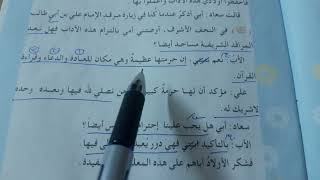 قالت سعاد: أبي أتذكر عندما كنا في زيارة مرقد الإمام علي بن أبي طالب
في النجف الأشرف، أوصتني أمي بالتزام هذه الآداب فهل تعد
المراقد الشريفة مساجد أيضا؟
الأب: نعم بنيتي، إن حرمتها عظيمة وهي مكان للعبادة والدعاء وقراءة
القرآن.
علي: مؤكد أن لها حرمة كبيرة نصلي لله فيها ونعبده وحده
لاشريك له.
سعاد: أبي هل يجب علينا احترام أيضا؟
الأب: بالتأكيد ابنتي فهي دور فيها.
فشكر الأولاد أباهم على هذه المعلومات المفيدة.